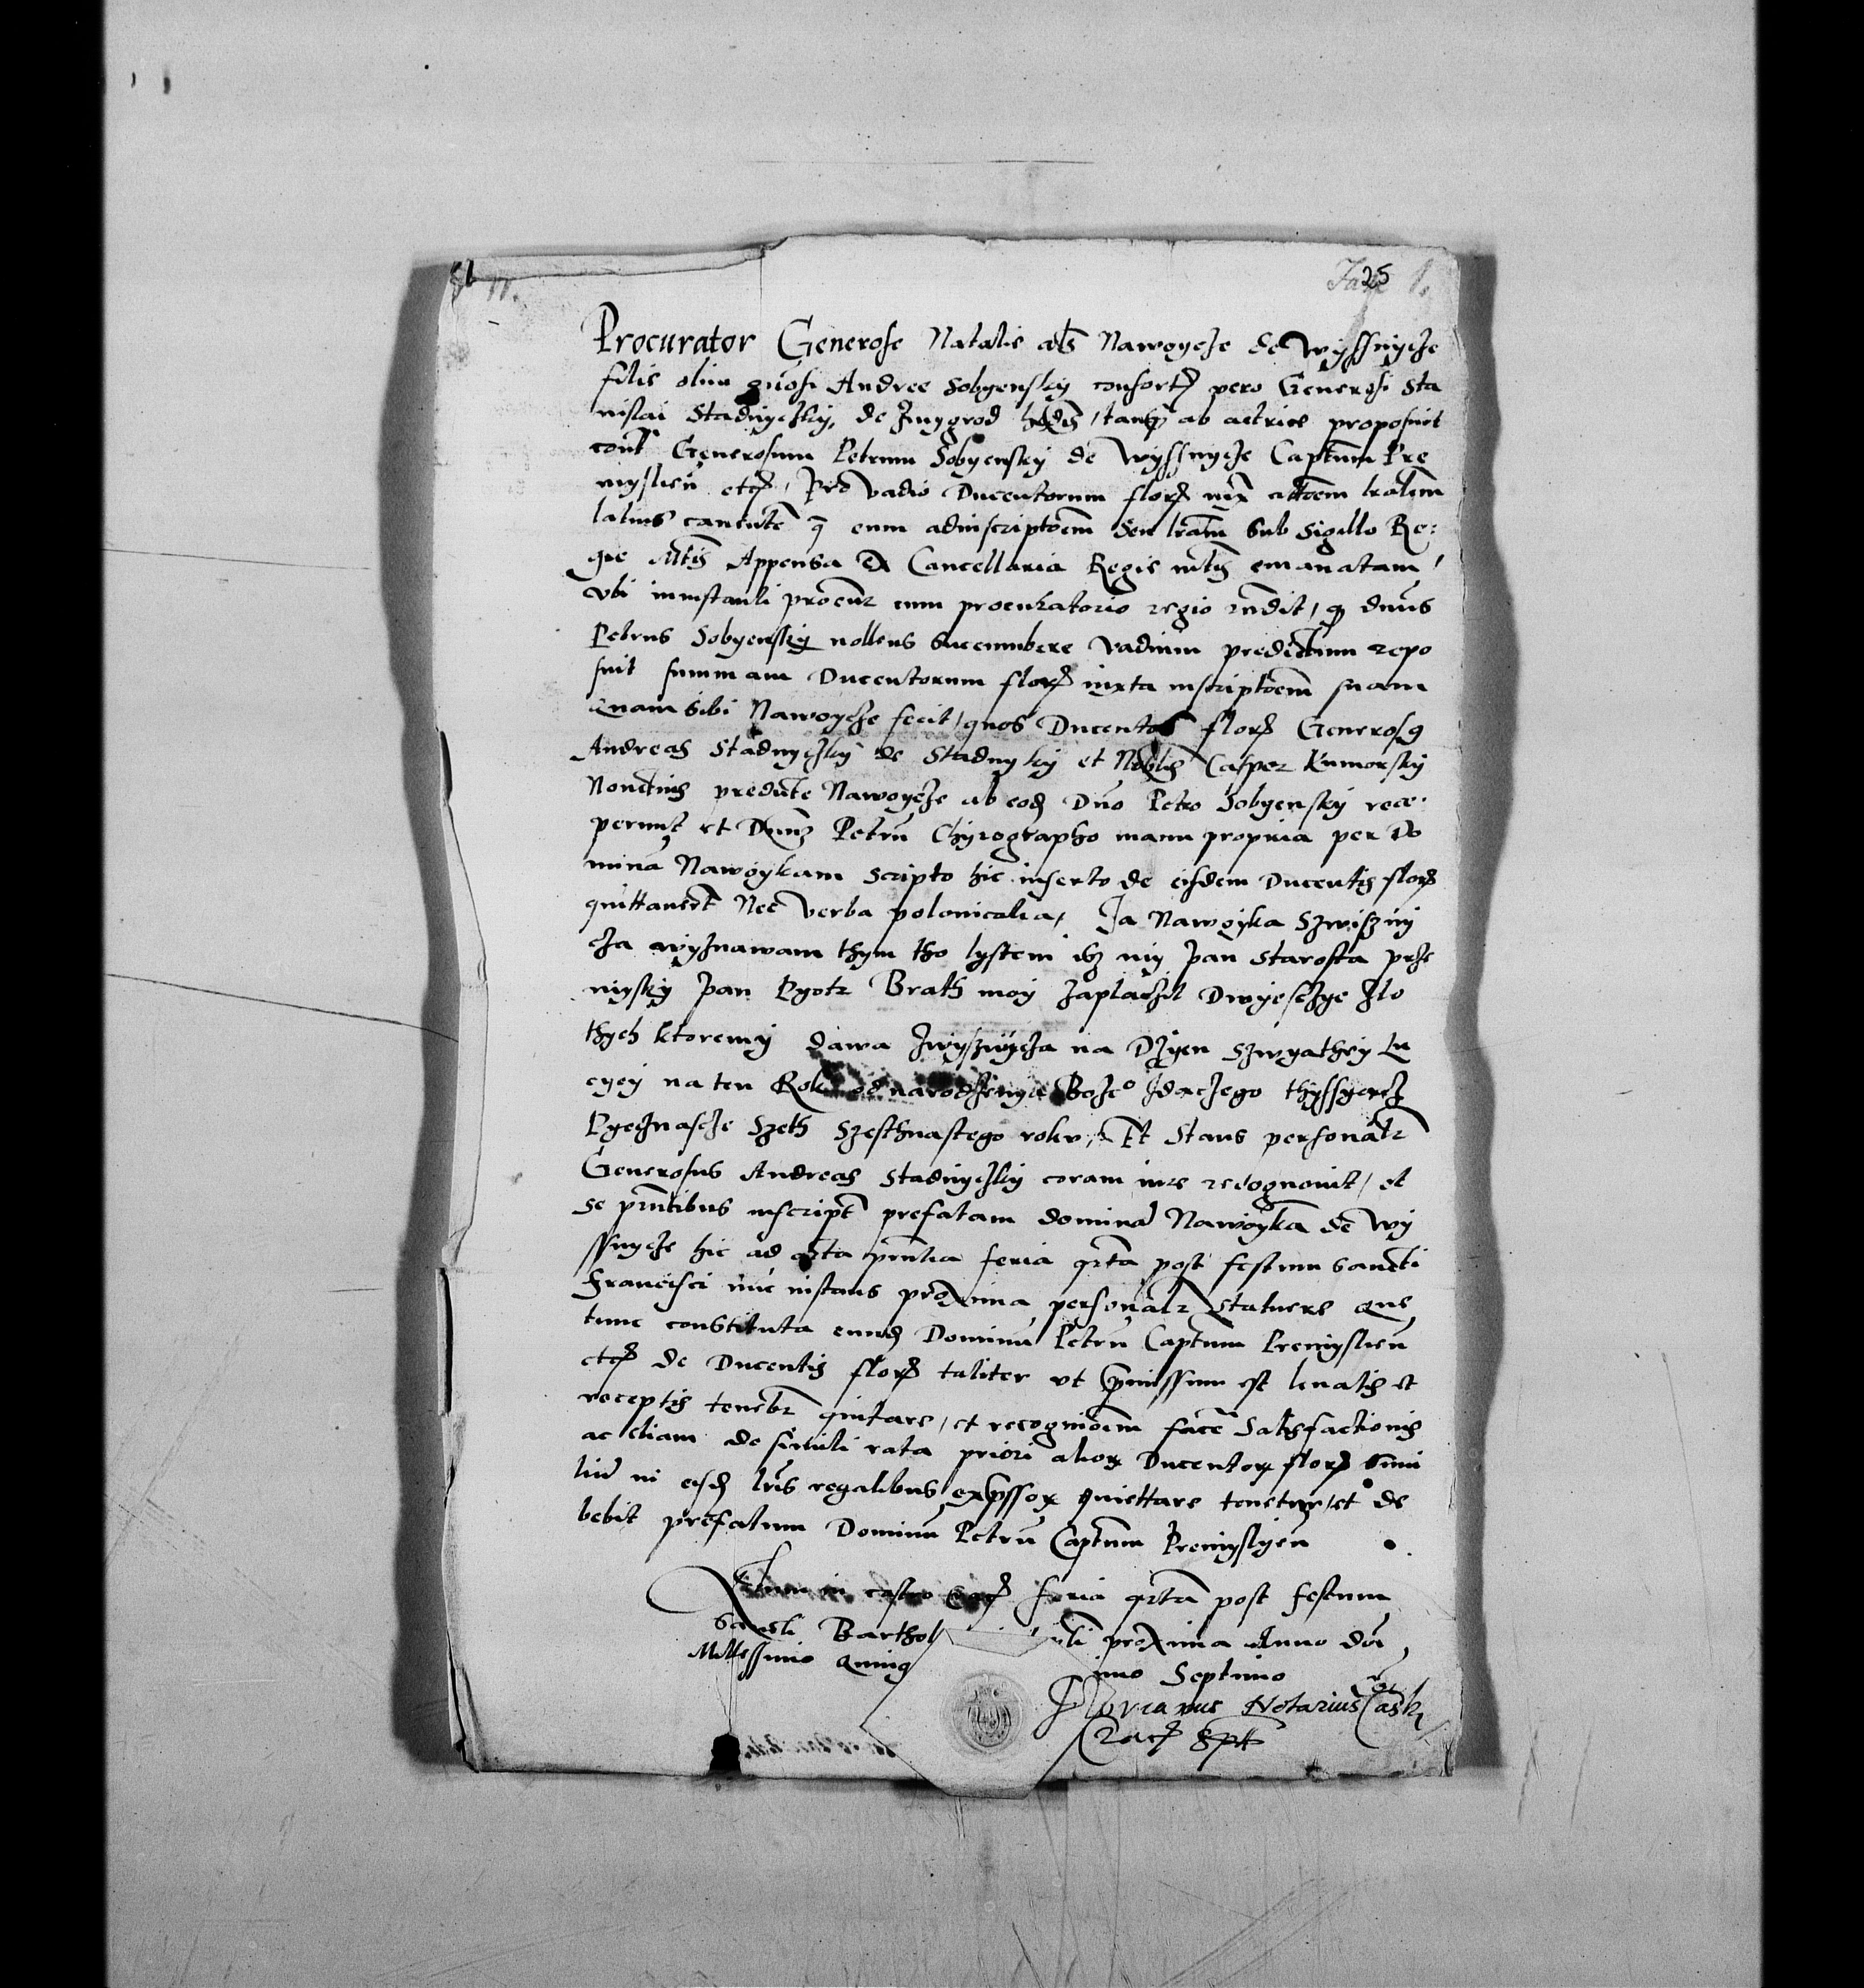 25
Procurator Generose Natalis als Nawoycze de Wyssnycze
filie olim gnosi Andree Sobyensky consort pero Generosi Sta
nislai Stadnyczky, de Zmygrod tanq ab actrice proposuit
cont Generosum Petrum Sobyensky de Wyssnycze Captum Pre
myslien etc, Pro vadio Ducentorum flor
latius eum adinscriptoem seu lram Sub Sigillo Re:
gie Mtis Appensa Ex Cancellaria Regie mtis emanatam,
vbi procur cum procuratorio regio rndit, q dnus
Petrus Sobyensky nollens Succumbere vadium predictum repo
suit summam Ducentorum flor iuxta inscriptoem suam
Quam sibi Nawoycze fecit, quos Ducentos flor Generosq
Andreas Stadnyczky de Stadnyky et Noblis Casper Kumorsky
Nonctius predicte Nawoycze ab eod Dno Petro Sobyensky rece
perunt et Dnum Petru Chyrographo manu propria per Do
mina Nawoykam scripto hic inserto de eisdem Ducentis flor
quittavert Nec verba polonicalia, Ja Nawoyka Szwiszny
cza wyznawam thym tho lystem isz my pan Starosta prze
mysky pan Pyotr Brath moy zaplaczil Dwyesczye zlo
thych ktoremy dawa zwysznycza na Dzyen Szwyathey Lu
cyey na ten Rok od narodzenya Boze° Idaczego thyssyencz
Pyecznascze Szeth Szesthnastego roku, Et Stans personalr
Generosus Andreas Stadnyczky coram iure recognouit, et
se prntibus inscript prefatam domina Nawoyka de Wy
ssnycze hic ad acta prntia feria qrta post festum sancti
Francisci nuc instans proxima personalr Statuere Que
tunc constituta eund Dominu Petru Captum Premyslien
etc de Ducentis flor taliter vt pmissum est leuatis et
receptis tenebr quitare, et recognicoem face Satisfactionis
ac etiam de simili rata priori alior Ducentor flor simi
liu in eisd lris regalibus expssor quiettare tenetur, et de
bebit prefatum Dominu Petru Captum Premyslyen
Actum in castro Crac feria qrta post festum
Sancti Barthol proxima Anno dni
Millessimo Quing imo Septimo
Florianus Notarius Castr
Crac sst